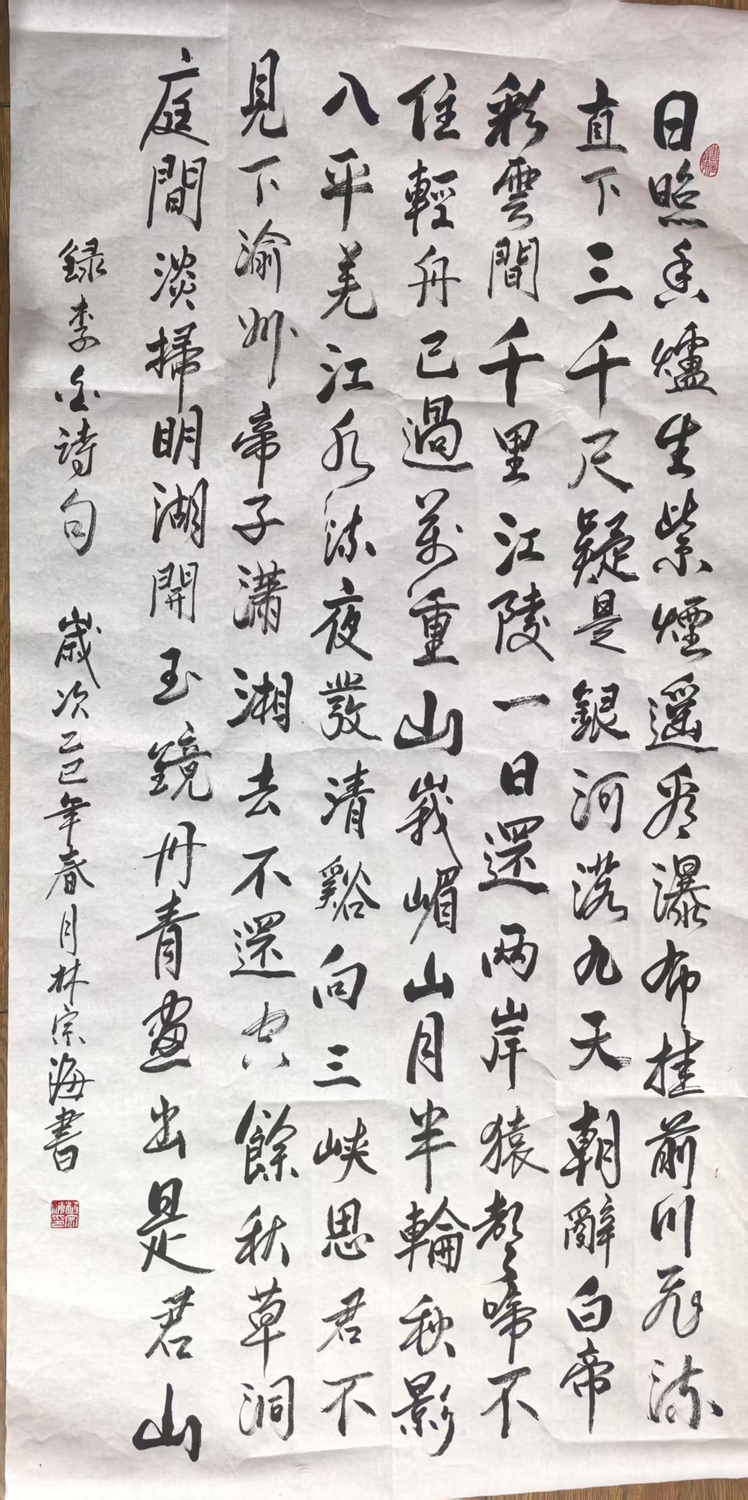 日照香爐生紫煙遥看瀑布挂前川飛流
直下三千尺疑是銀河落九天朝辭白帝
彩雲間千里江陵一日還两岸猿聲啼不
住輕舟已過萬重山峨嵋山月半輪秋影
入平羌江水流夜發清谿向三峽思君不
見下渝州帝子瀟湘去不還空餘秋草洞
庭間淡掃明湖開玉鏡丹青畫出是君山
録李白詩句 歲次乙巳年春月林宗海書